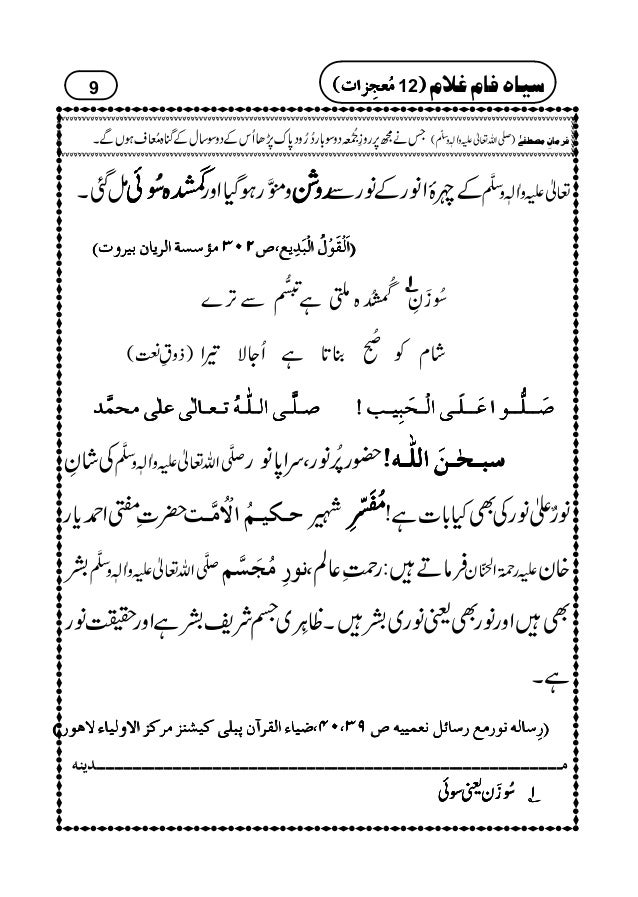 سیاہ فام غلام (12 مُعجِزات)
9
فرمانِ مصطفےٰ (صلی اللہ تعالیٰ علیہ والہٖ وسلم) جس نے مجھ پر روزِ جُمُعہ دو سو بار دُرُودِ پاک پڑھا اُس کے دو سو سال کے گناہ مُعاف ہوں گے۔
تعالیٰ علیہ واٰلہٖ وسلَّم کے چہرۂ انور کے نور سے روشن و منوَّر ہو گیا اور گمشدہ سُوئی مل گئی۔
(اَلْقَوْلُ الْبَدِیع، ص ۳۰۲ مؤسسة الریان بیروت)
سُوزَنِ ۱؎ گُمشُدہ ملتی ہے تبسُّم سے ترے
شام کو صُبح بناتا ہے اُجالا تیرا (ذوقِ نعت)
صَلُّوا عَلَی الْحَبِیب! صلَّی اللّٰہُ تعالٰی علٰی محمَّد
سبحٰنَ اللّٰه! حضور پُرنور، سراپا نور صلَّی اللہ تعالیٰ علیہ واٰلہٖ وسلَّم کی شانِ
نورٌ علیٰ نور کی بھی کیا بات ہے! مُفَسِّرِ شہیر حکیمُ الْاُمَّت حضرتِ مفتی احمد یار
خان علیہ رحمۃ الحنّان فرماتے ہیں: رحمتِ عالم، نورِ مُجَسَّم صلَّی اللہ تعالیٰ علیہ واٰلہٖ وسلَّم بشر
بھی ہیں اور نور بھی یعنی نوری بشر ہیں۔ ظاہِری جسم شریف بشر ہے اور حقیقت نور
ہے۔
(رِسالہ نور مع رسائل نعمییه ص ۳۹، ۴۰، ضیاء القرآن پبلی کیشنز مرکز الاولیاء لاهور)
مــدینه
۱؎ سُوزَن یعنی سوئی